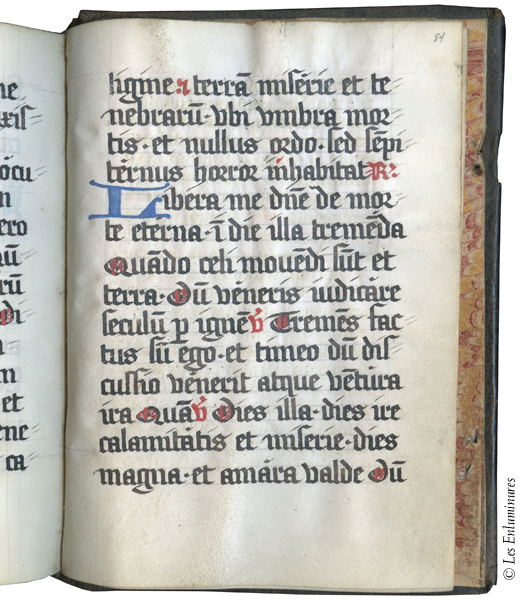 ne
xis
ocu
n
ero
rū
rū
di
n
et
enc
ca
84
ligine· terrā miserie et te
nebrarū· vbi vmbra mor
tis· et nullus ordo· sed sēpi
ternus horror inhabitat R:
Libera me dn̄e de mor
te eterna· ī die illa tremēda
Quādo celi mouēdi sūt et
terra· Dū veneris iudicare
seculū p ignē v̄ Tremēs fac
tus sū ego· et timeo dū dis
cussio venerit atque vētura
ira Quā v̄ Dies illa· dies ire
calamitatis et miserie· dies
magna· et amara valde Dū
© Les Enluminures